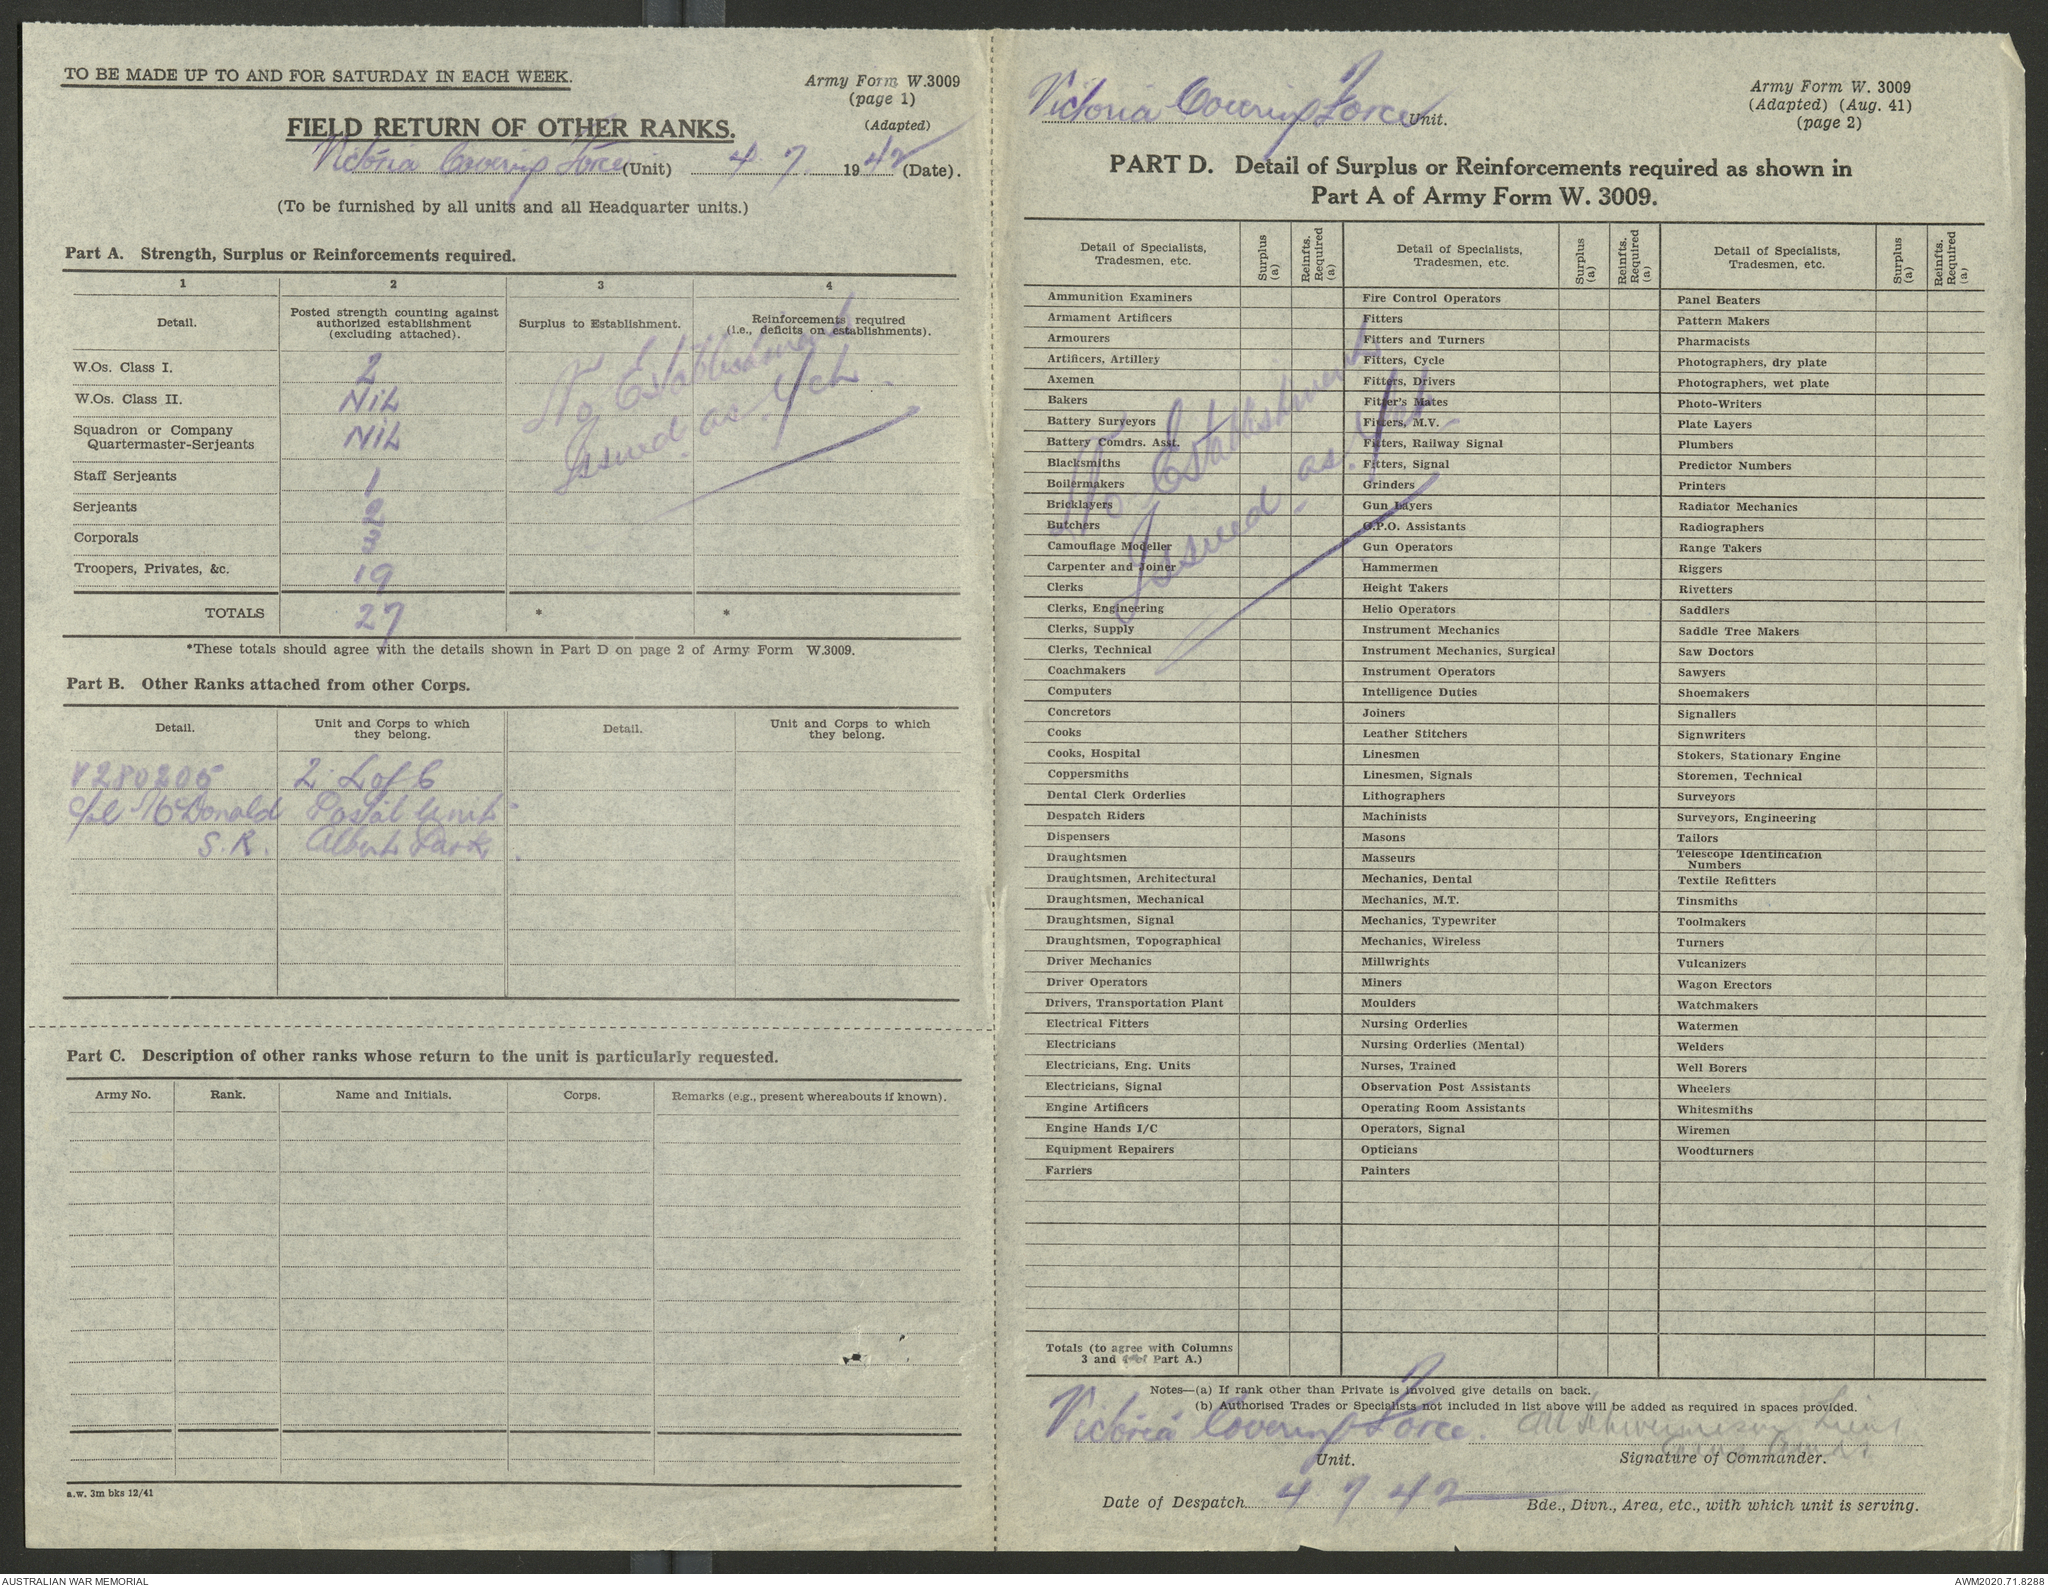 TO BE MADE UP TO AND FOR SATURDAY IN EACH WEEK.
Army Form W.3009
(page 1)
(Adapted)
FIELD RETURN OF OTHER RANKS.
Victoria Covering Force (Unit) 4 . 7 . 1942 (Date).
(To be furnished by all units and all Headquarter units.)
Part A. Strength, Surplus or Reinforcements required.
1 2 3 4
Detail. Posted strength counting against authorized establishment (excluding attached). Surplus to Establishment. Reinforcements required (i.e., deficits on establishments).
W.Os. Class I. 2
W.Os. Class II. NiL
Squadron or Company Quartermaster-Serjeants NiL
Staff Serjeants 1
Serjeants 2
Corporals 3
Troopers, Privates, &c. 19
No Establishment
Issued as Yet.
TOTALS 27 * *
*These totals should agree with the details shown in Part D on page 2 of Army Form W.3009.
Part B. Other Ranks attached from other Corps.
Detail. Unit and Corps to which they belong. Detail. Unit and Corps to which they belong.
V280205 2 L of C
Cpl McDonald Postal Unit
S.R. Albert Park.
Part C. Description of other ranks whose return to the unit is particularly requested.
Army No. Rank. Name and Initials. Corps. Remarks (e.g., present whereabouts if known).
a.w. 3m bks 12/41
Victoria Covering Force Unit.
Army Form W. 3009
(Adapted) (Aug. 41)
(page 2)
PART D. Detail of Surplus or Reinforcements required as shown in
Part A of Army Form W. 3009.
Detail of Specialists, Tradesmen, etc. Surplus (a) Reinfts. Required (a) Detail of Specialists, Tradesmen, etc. Surplus (a) Reinfts. Required (a) Detail of Specialists, Tradesmen, etc. Surplus (a) Reinfts. Required (a)
Ammunition Examiners Fire Control Operators Panel Beaters
Armament Artificers Fitters Pattern Makers
Armourers Fitters and Turners Pharmacists
Artificers, Artillery Fitters, Cycle Photographers, dry plate
Axemen Fitters, Drivers Photographers, wet plate
Bakers Fitter's Mates Photo-Writers
Battery Surveyors Fitters, M.V. Plate Layers
Battery Comdrs. Asst. Fitters, Railway Signal Plumbers
Blacksmiths Fitters, Signal Predictor Numbers
Boilermakers Grinders Printers
Bricklayers Gun Layers Radiator Mechanics
Butchers G.P.O. Assistants Radiographers
Camouflage Modeller Gun Operators Range Takers
Carpenter and Joiner Hammermen Riggers
Clerks Height Takers Rivetters
Clerks, Engineering Helio Operators Saddlers
Clerks, Supply Instrument Mechanics Saddle Tree Makers
Clerks, Technical Instrument Mechanics, Surgical Saw Doctors
Coachmakers Instrument Operators Sawyers
Computers Intelligence Duties Shoemakers
Concretors Joiners Signallers
Cooks Leather Stitchers Signwriters
Cooks, Hospital Linesmen Stokers, Stationary Engine
Coppersmiths Linesmen, Signals Storemen, Technical
Dental Clerk Orderlies Lithographers Surveyors
Despatch Riders Machinists Surveyors, Engineering
Dispensers Masons Tailors
Draughtsmen Masseurs Telescope Identification Numbers
Draughtsmen, Architectural Mechanics, Dental Textile Refitters
Draughtsmen, Mechanical Mechanics, M.T. Tinsmiths
Draughtsmen, Signal Mechanics, Typewriter Toolmakers
Draughtsmen, Topographical Mechanics, Wireless Turners
Driver Mechanics Millwrights Vulcanizers
Driver Operators Miners Wagon Erectors
Drivers, Transportation Plant Moulders Watchmakers
Electrical Fitters Nursing Orderlies Watermen
Electricians Nursing Orderlies (Mental) Welders
Electricians, Eng. Units Nurses, Trained Well Borers
Electricians, Signal Observation Post Assistants Wheelers
Engine Artificers Operating Room Assistants Whitesmiths
Engine Hands I/C Operators, Signal Wiremen
Equipment Repairers Opticians Woodturners
Farriers Painters
No Establishment
Issued as Yet.
Totals (to agree with Columns
3 and 4 of Part A.)
Notes—(a) If rank other than Private is involved give details on back.
(b) Authorised Trades or Specialists not included in list above will be added as required in spaces provided.
Victoria Covering Force. Lieut
Unit. Signature of Commander.
Date of Despatch 4 7 42 Bde., Divn., Area, etc., with which unit is serving.
AUSTRALIAN WAR MEMORIAL AWM2020.71.8288